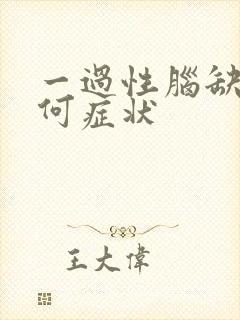 一過性腦缺
何症状
王大偉